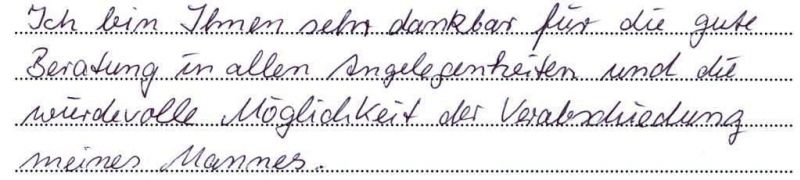 Ich bin Ihnen sehr dankbar für die gute
Beratung in allen Angelegenheiten und die
würdevolle Möglichkeit der Verabschiedung
meines Mannes.